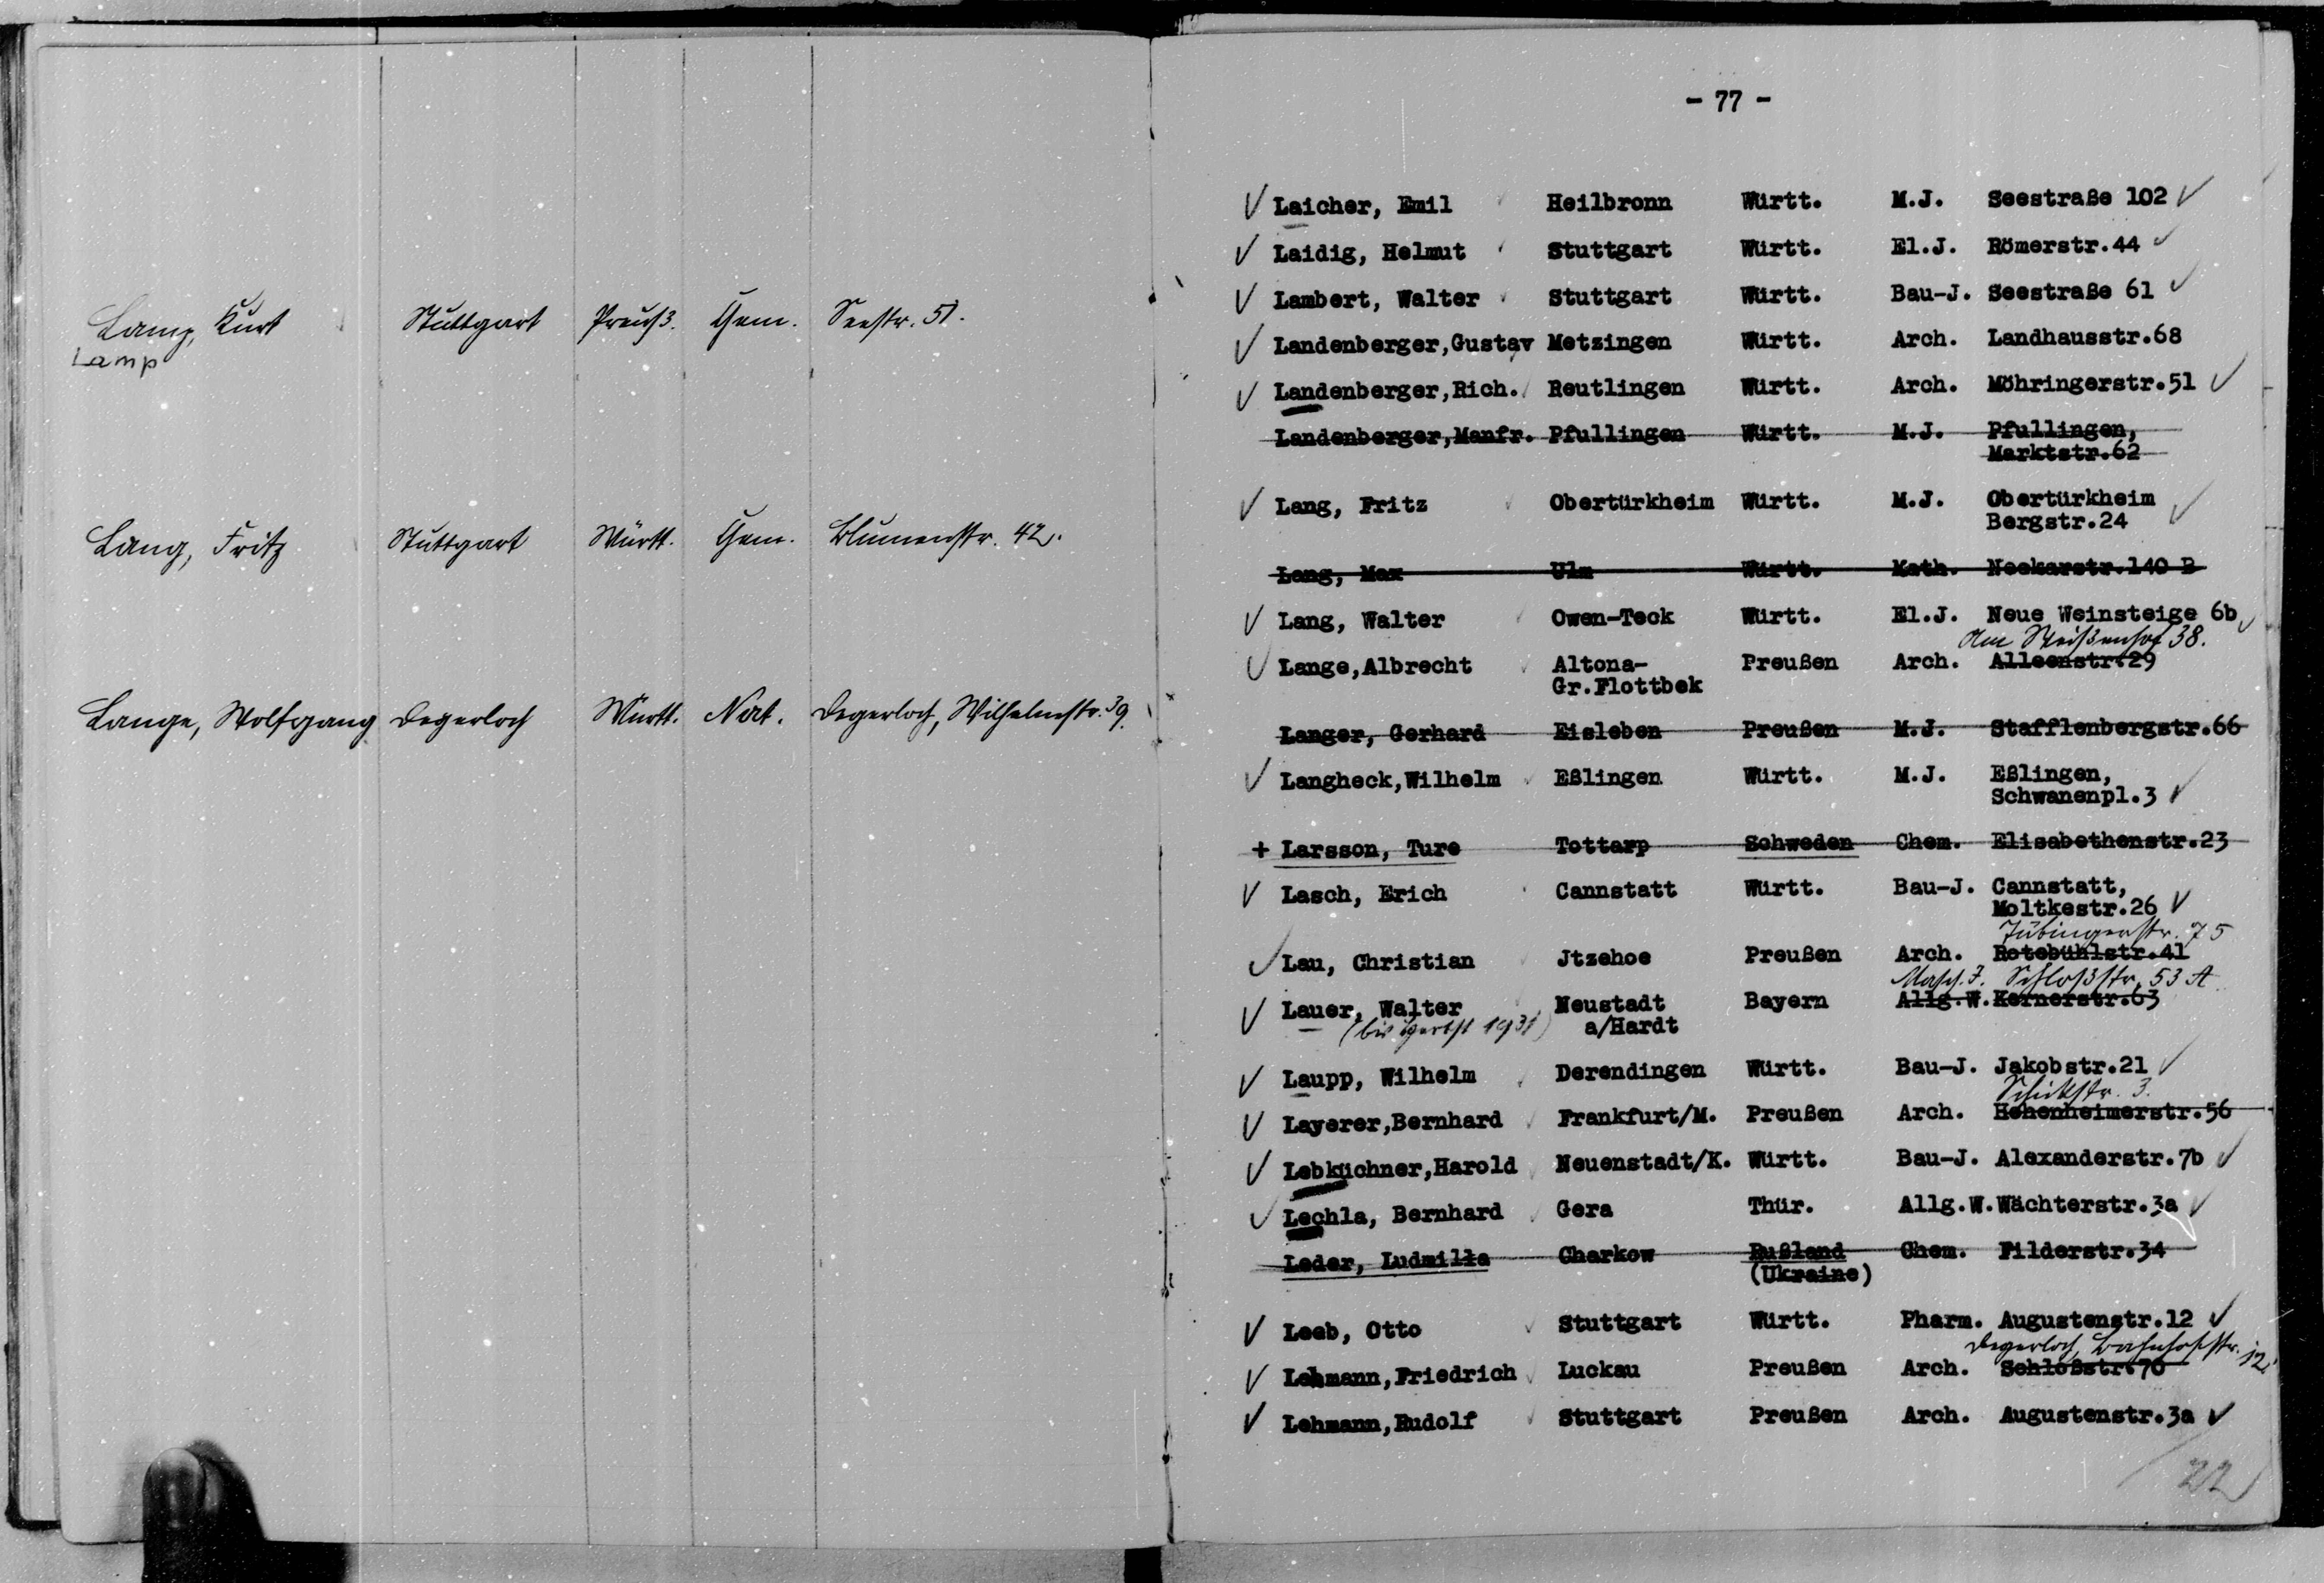 Lamp, Kurt Stuttgart Preuß. Chem. Seestr. 51.
Lamp
Lang, Fritz Stuttgart Württ. Chem. Blumenstr. 42.
Lange, Wolfgang Degerloch Württ. Nat. Degerloch, Wilhelmstr. 39.
- 77 -
Laicher, Emil Heilbronn Württ. M.J. Seestraße 102
Laidig, Helmut Stuttgart Württ. El.J. Römerstr.44
Lambert, Walter Stuttgart Württ. Bau-J. Seestraße 61
Landenberger,Gustav Metzingen Württ. Arch. Landhausstr.68
Landenberger,Rich. Reutlingen Württ. Arch. Möhringerstr.51
Landenberger,Manfr. Pfullingen Württ. M.J. Pfullingen,
Marktstr.62
Lang, Fritz Obertürkheim Württ. M.J. Obertürkheim
Bergstr.24
Lang, Max Ulm Württ. Math. Neckarstr.140 B
Lang, Walter Owen-Teck Württ. El.J. Neue Weinsteige 6b
Am Weißenhof 38.
Lange,Albrecht Altona- Preußen Arch. Alleenstr.29
Gr.Flottbek
Langer, Gerhard Eisleben Preußen M.J. Stafflenbergstr.66
Langheck,Wilhelm Eßlingen Württ. M.J. Eßlingen,
Schwanenpl.3
+ Larsson, Ture Tottarp Schweden Chem. Elisabethenstr.23
Lasch, Erich Cannstatt Württ. Bau-J. Cannstatt,
Moltkestr.26
Tübingerstr. 75
Lau, Christian Jtzehoe Preußen Arch. Rotebühlstr.41
Masch.J. Schloßstr. 53 A
Lauer, Walter Neustadt Bayern Allg.W.Kernerstr.63
(bis Herbst 1931) a/Hardt
Laupp, Wilhelm Derendingen Württ. Bau-J. Jakobstr.21
3.
Layerer,Bernhard Frankfurt/M. Preußen Arch. Hohenheimerstr.56
Lebküchner,Harold Neuenstadt/K. Württ. Bau-J. Alexanderstr.7b
Lechla, Bernhard Gera Thür. Allg.W.Wächterstr.3a
Leder, Ludmilla Charkow Rußland Chem. Filderstr.34
(Ukraine)
Leeb, Otto Stuttgart Württ. Pharm. Augustenstr.12
Degerloch, Bahnhofstr. 12
Lehmann,Friedrich Luckau Preußen Arch. Schloßstr.70
Lehmann,Rudolf Stuttgart Preußen Arch. Augustenstr.3a
22